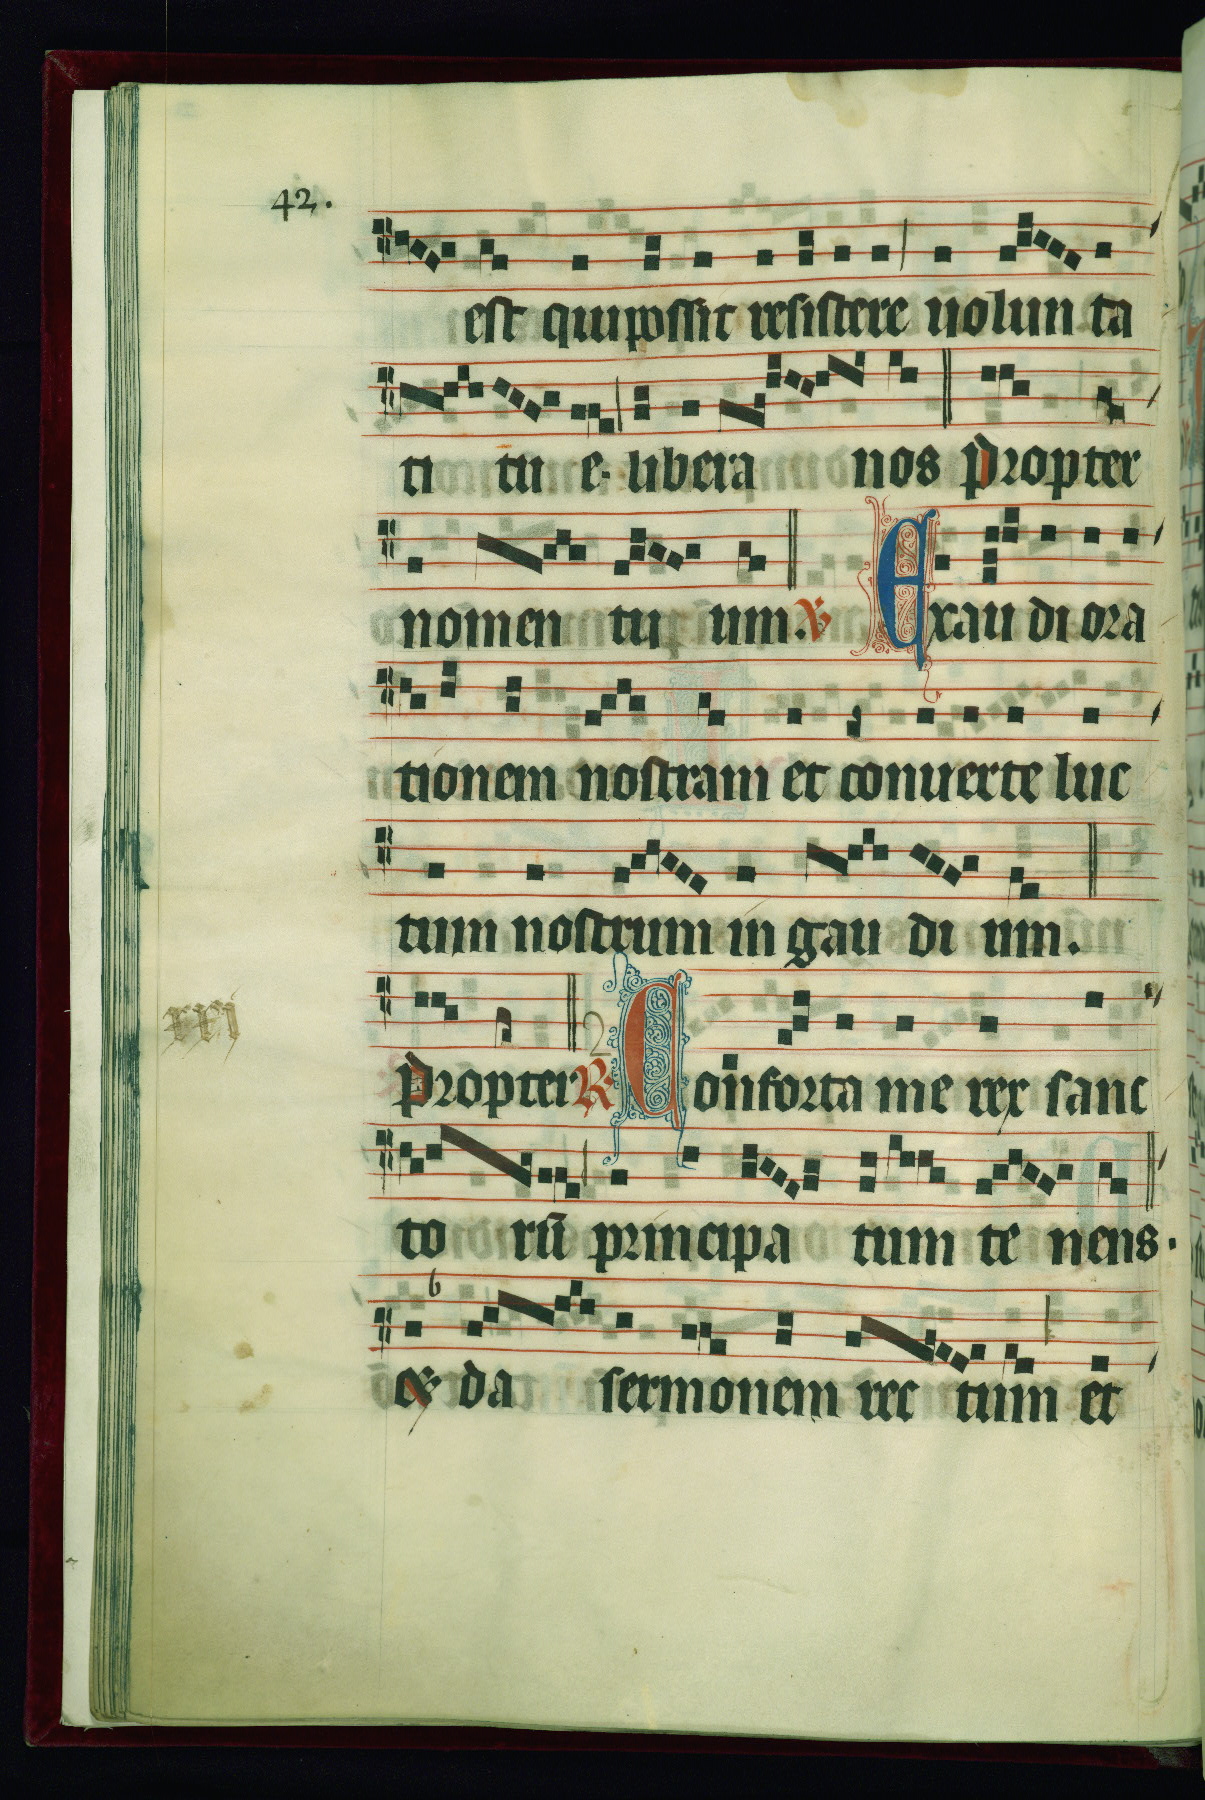 42.
est qui possit resistere uolun ta
ti tu e. libera nos Propter
nomen tu um. ℣ Exau di ora
tionem nostram et conuerte luc
tum nostrum in gau di um.
xxi
Propter 2 ℟ Cōnforta me rex sanc
to rū principa tum te nens.
b
et da sermonem rec tum et